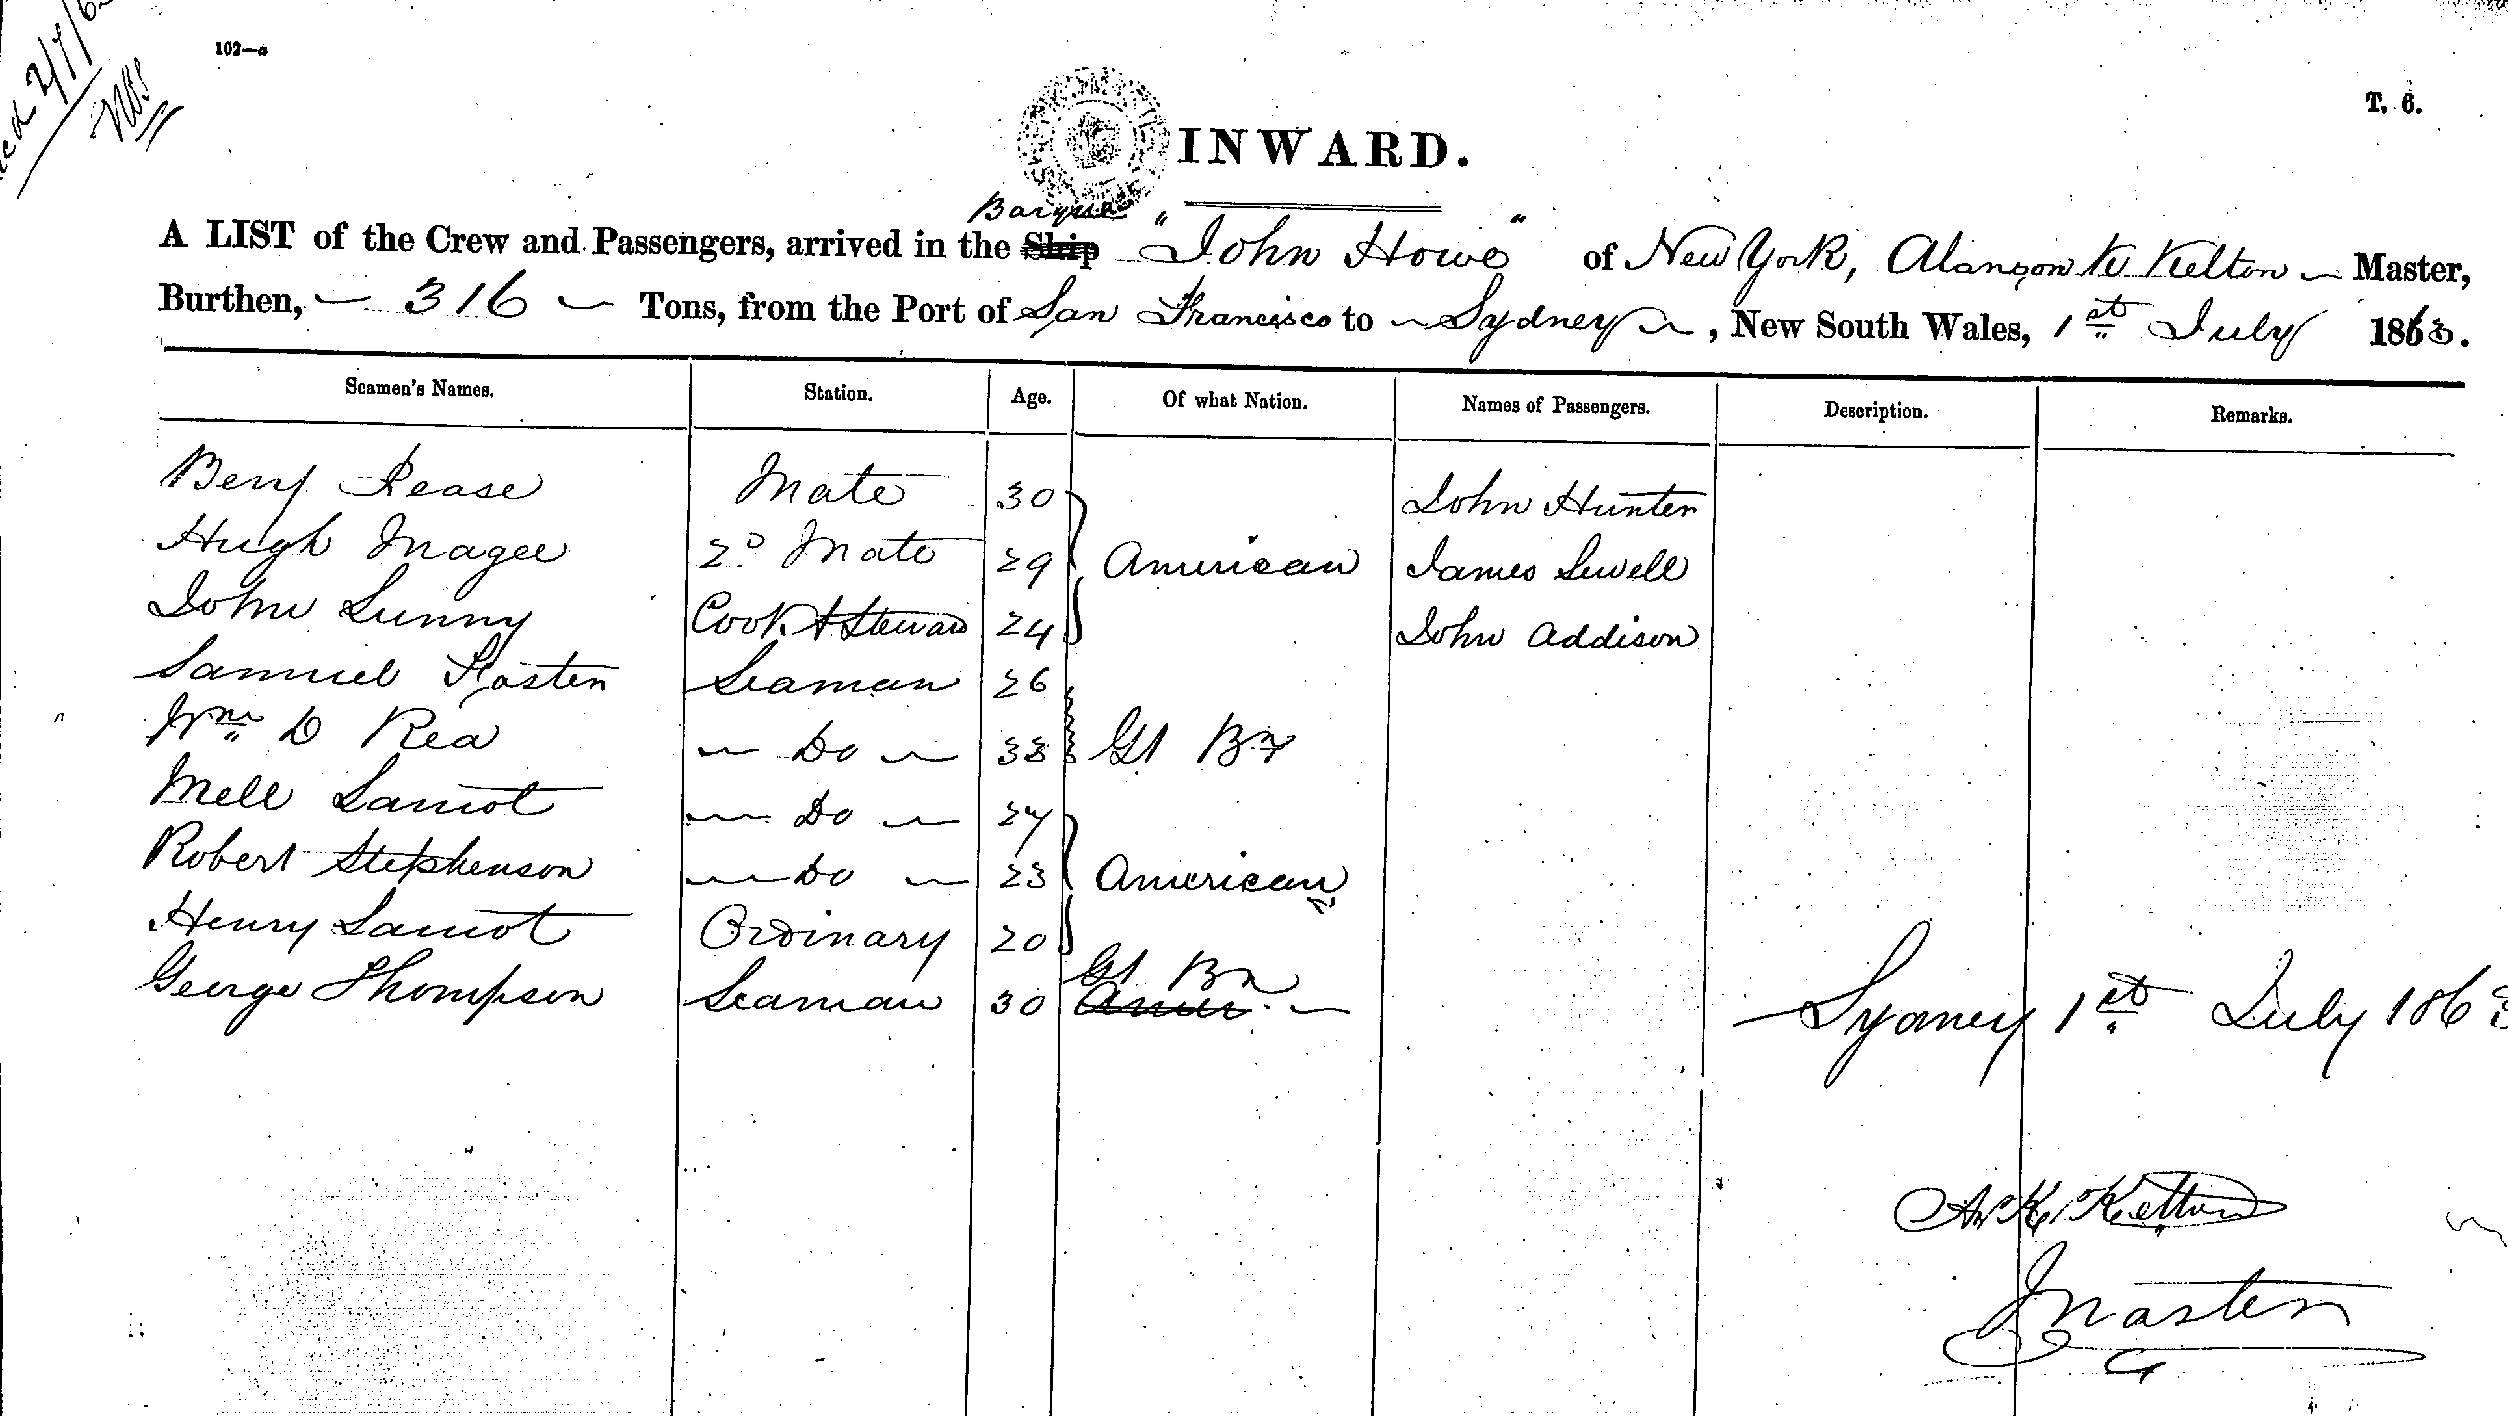 102—a
T. 6.
INWARD.
Barque
A LIST of the Crew and Passengers, arrived in the Ship "John Howe" of New York, Alanson K Kelton — Master,
Burthen, — 316 — Tons, from the Port of San Francisco to — Sydney —, New South Wales, 1st July 1863.
Seamen's Names. Station. Age. Of what Nation. Names of Passengers. Description. Remarks.
Benj Pease Mate 30 John Hunter
Hugh Magee 2D Mate 29 American James Sewell
John Lunny Cook & Steward 24 John Addison
Samuel Seaman 26
Wm D Rea — Do — 33 Gt Bn
Mell Lamot — Do — 24
Robert Stephenson — Do — 23 American
Henry Lamot Ordinary 20
Gt Bn
George Thompson Seaman 30 Amer —
Sydney 1st July 1863
A K Kelton
Master